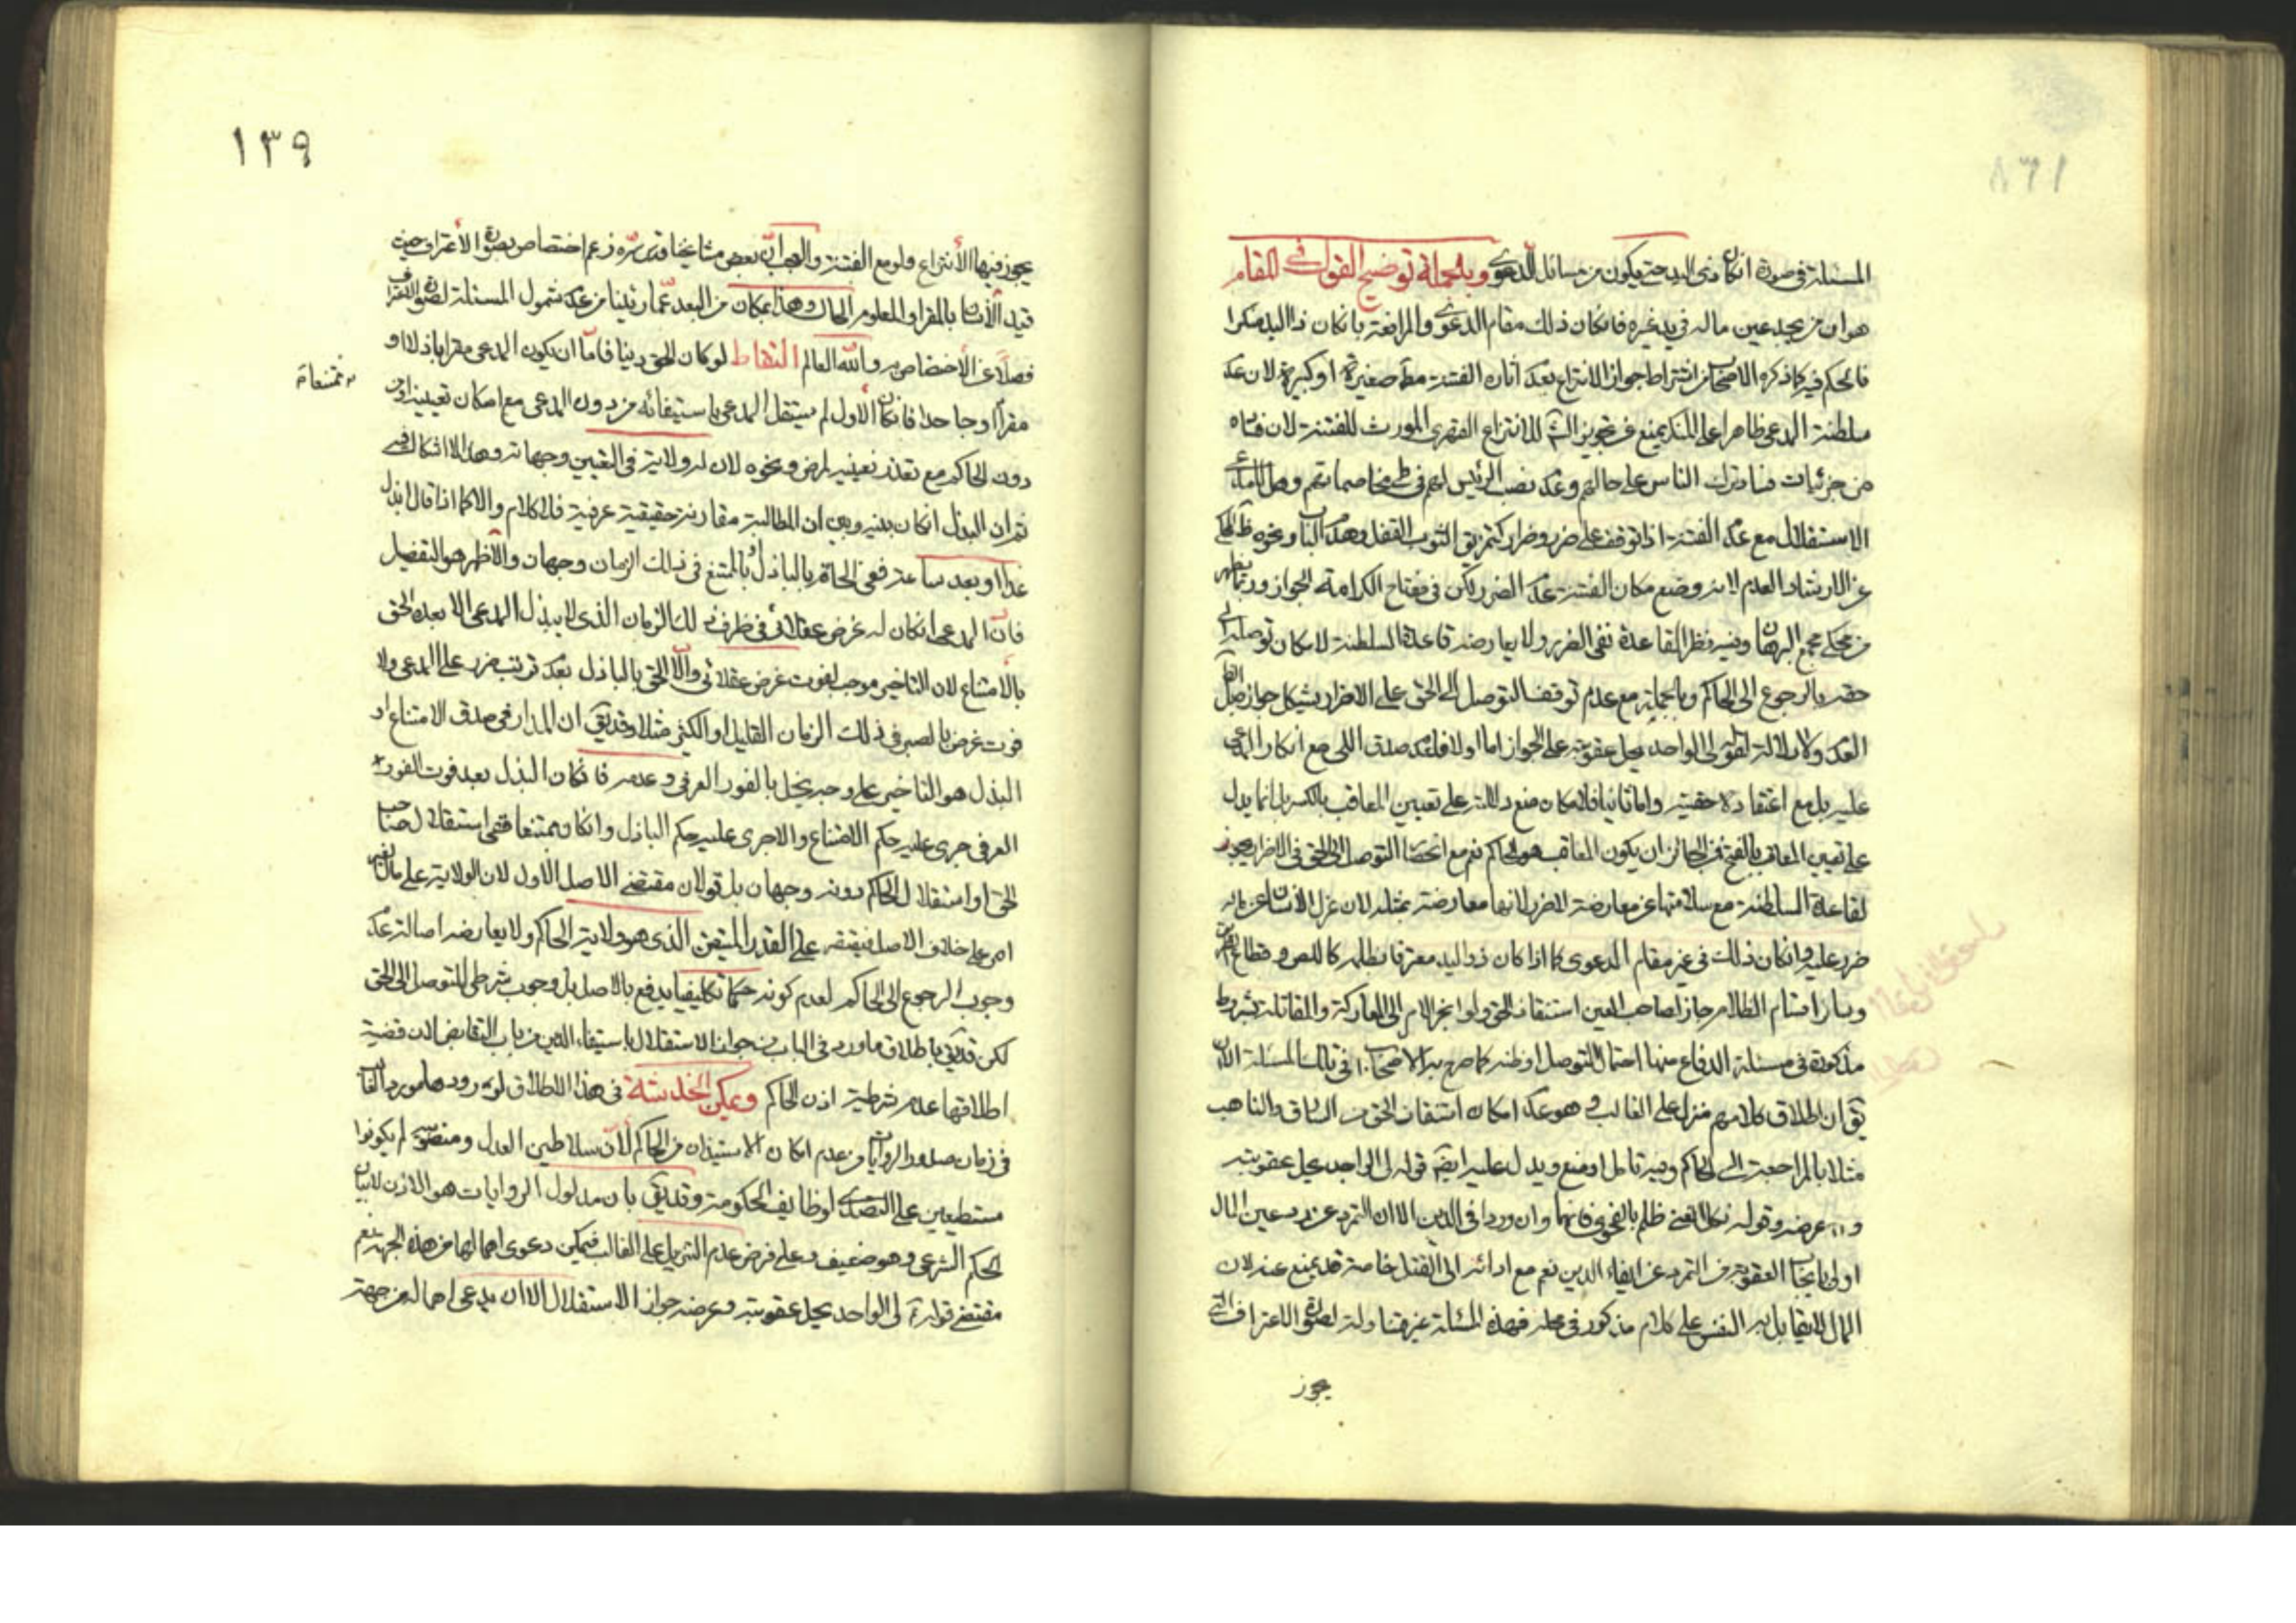 المسئلة في صورة انكار ذي اليد حتى يكون من مسائل الدعوى وبالجملة توضيح القول في المقام
هو ان من يجد عين ماله في يد غيره فان كان ذلك مقام الدعوى والمرافعة بان كان ذا اليد منكرا
فالحكم فيه كما ذكره الاصحاب من اشتراط جواز الانتزاع بعدم اثارة الفتنة مط صغيرة او كبيرة لان عدم
سلطنة المدعي ظاهرا على المنكر يمنع عن تجويز الش للانتزاع القهري المورث للفتنة لان
من جزئيات فساد ترك الناس على حالهم وعدم نصب الرئيس لهم في مخاصماتهم وهل للمدعي
الاستقلال مع عدم الفتنة اذا توقف على ضرر وضرار كتمزيق الثوب القفل وهدم الباب ونحوه ظ المحكي
عن الارشاد العدم لانه وضع مكان الفتنة عدم الضرر لكن في مفتاح الكرامة الجواز وربما يظهر
من محكي مجمع البرهان وفيه نظر لقاعدة نفي الضرر ولا يعارضه قاعدة السلطنة لامكان توصله الى
حقه بالرجوع الى الحاكم وبالجملة مع عدم توقف التوصل الى الحق على الاضرار يشكل جوازه بل
العدم ولا دلالة لقوله لي الواجد يحل عقوبته على الجواز اما اولا فلعدم صدق اللي مع انكار المدعى
عليه بل مع اعتقاده حقيته واما ثانيا فلامكان منع دلالته على تعيين المعاقب بالكسر بل انما يدل
على تعيين المعاقب بالفتح فمن الجائز ان يكون المعاقب هو الحاكم نعم مع انحصار التوصل الى الحق في الاضرار يجوز
لقاعدة السلطنة مع سلامتها عن معارضة الاضرار لانها معارضة بمثله لان عزل الانسان عن ماله
ضرر عليه وان كان ذلك في غير مقام الدعوى كما اذا كان ذو اليد معترفا بظلمه كاللص وقطاع الطريق
وسائر اقسام الظلام جاز لصاحب العين استنقاذ الحق ولو انجر الامر الى المعاركة والمقاتلة بشرائط
مذكورة في مسئلة الدفاع منها احتمال التوصل او ظنه كما صرح به الاصحاب في تلك المسئلة الا ان
يق ان اطلاق كلامهم منزل على الغالب وهو عدم امكان استنقاذ الحق من السارق والناهب
مثلا بالمراجعة الى الحاكم وفيه تامل او منع ويدل عليه ايضا قوله لي الواجد يحل عقوبته
وعرضه وقوله مطل الغني ظلم بالفحوى فانهما وان وردا في الدين الا ان التمرد عن رد عين المال
اولى بايجاب العقوبة من التمرد عن ايفاء الدين نعم مع ادائه الى القتل خاصة قد يمنع عنه لان
المال لا يقابل به النفس على كلام مذكور في محله فهذه المسئلة غير متناولة لصورة الاعتراف التي
يجوز
١٣٩
يجوز فيها الانتزاع ولو مع الفتنة والعجب ان بعض مشايخنا قدس سره زعم اختصاص بصورة الاعتراف حيث
قيد الانسان بالمقر او المعلوم الحال وهذا بمكان من البعد عما رئينا من عدم شمول المسئلة لصورة الاعتراف
فضلا عن الاختصاص به والله العالم التقاط لو كان الحق دينا فاما ان يكون المدعى مقرا باذلا او
مقرا او جاحدا فان كان الاول لم يستقل المدعي باستيفائه من دون المدعى مع امكان تعيينه او من
ممتنعا
دون الحاكم مع تعذر تعيينه لمرض ونحوه لان له ولاية في التعيين وجهاته وهذا لا اشكال فيه
ثم ان البذل ان كان بينه وبين ان المطالبة مقارنة حقيقية عرفية فلا كلام والا كما اذا قال ابذل
غدا او بعد ساعة ففي الحاقه بالباذل او بالممتنع في ذلك الزمان وجهان والاظهر هو التفصيل
فان المدعي ان كان له غرض عقلائي في ظرف ذلك الزمان الذي لا يبذل المدعى الا بعده الحق
بالامتناع لان التاخير موجب لفوت غرض عقلائي والا الحق بالباذل بعدم ترتب ضرر على المدعي ولا
فوت غرض بالصبر في ذلك الزمان القليل او الكثير مثلا وقد يق ان المدار في صدق الامتناع او
البذل هو التاخير على وجه يخل بالفور العرفي وعدمه فان كان البذل بعد فوت الفورية
العرفي جرى عليه حكم الامتناع والا جرى عليه حكم الباذل وان كان ممتنعا ففي استقلال صاحب
الحق او استقلال الحاكم دونه وجهان بل قولان مقتضى الاصل الاول لان الولاية على مال الغير
امر على خلاف الاصل فيقتصر على القدر المتيقن الذي هو ولاية الحاكم ولا يعارضه اصالة عدم
وجوب الرجوع الى الحاكم لعدم كونه حكما تكليفيا يدفع بالاصل بل وجوب شرطي للتوصل الى الحق
لكن قد يق باطلاق ما ورد في الباب من جواز الاستقلال باستيفاء الدين من باب التقاص لان قضية
اطلاقها عدم شرطية اذن الحاكم ويمكن الخدشة في هذا الاطلاق لورودها مورد الغالب
في زمان صدور الروايات من عدم امكان الاستيذان من الحاكم لان سلاطين العدل ومنصوبه لم يكونوا
مستطيعين على التصدي لوظايف الحكومة وقد يق بان مدلول الروايات هو الاذن لا بيان
الحكم الشرعي وهو ضعيف وعلى فرض عدم التنزيل على الغالب فيمكن دعوى اهمالها من هذه الجهة نعم
مقتضى قوله لي الواجد يحل عقوبته وعرضه جواز الاستقلال الا ان يدعى اهماله من جهة